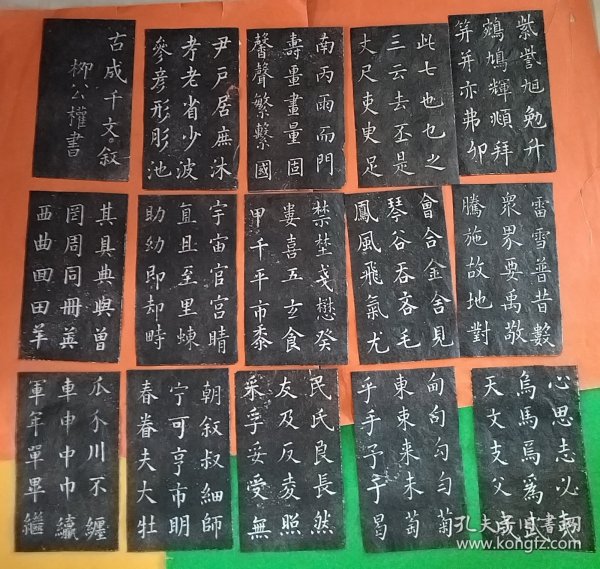 古成千文。叙
柳公權書
尹戸居庶沐
孝老省少波
參彦形彫池
南丙雨而門
壽畺畫量固
馨聲繁繫國
此七也乜之
三云去丕是
丈尺吏叓足
紫訾旭勉升
鳩輝頫拜
筭并亦弗卯
其具典與曽
罔周同冊英
西曲囬田羊
宇宙官宮晴
直且至里悚
助幼即却時
禁埜戔懋癸
婁喜五玄食
甲千平市黍
會合金舍見
琴谷吞吝毛
鳳風飛氣尤
雷雪普昔數
衆界要禹敬
騰施故地對
瓜介川不纏
車申中巾
軍年單畢繼
朝叙叔細師
宁可亨市明
春眷夫大牡
民氏良長然
友及反夌照
采孚妥受無
甸旬勾匀菊
東束来未萄
乎手予于曷
心思志必
烏馬焉為
天文支父成
孔夫子旧书网
www.kongfz.com